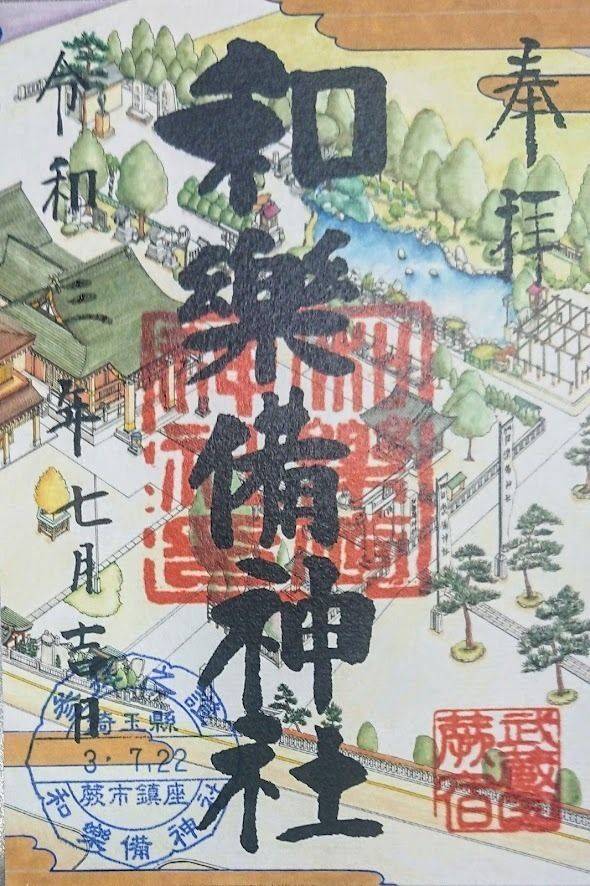 奉拝
和樂備神社
令和三年七月吉日
武蔵国
蕨宿
埼玉縣
3.7.22
蕨市鎮座
和樂備神社